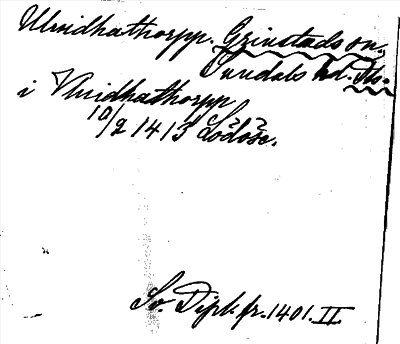 Ulvidhathorpp. Grinstads sn.
Sundals hd. Äs.
i Vlvidhathorpp
10/2 1413 Lödöse.
Sv. Dipl. fr. 1401. II